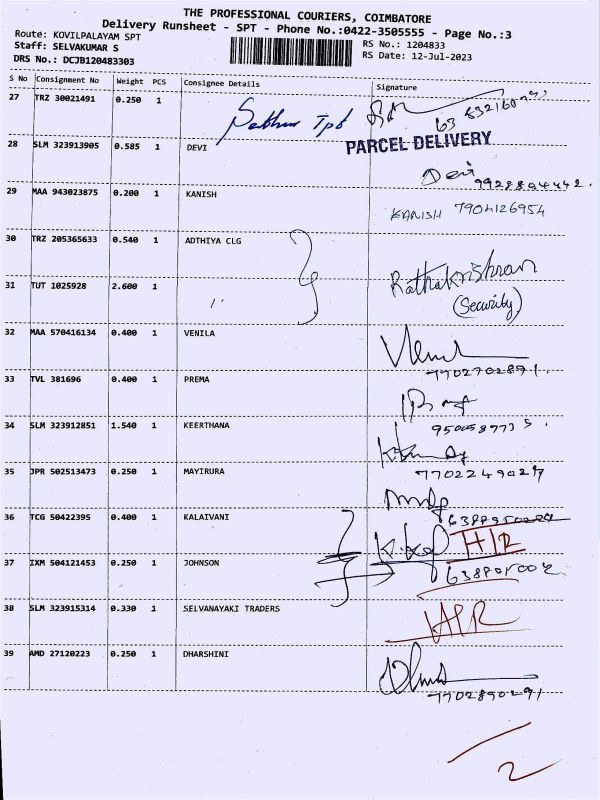 THE PROFESSIONAL COURIERS, COIMBATORE
Delivery Runsheet - SPT - Phone No.:0422-3505555 - Page No.:3
Route: KOVILPALAYAM SPT
Staff: SELVAKUMAR S
DRS No.: DCJB120483303
RS No.: 1204833
RS Date: 12-Jul-2023
S No Consignment No Weight PCS Consignee Details Signature
27 TRZ 30021491 0.250 1
PARCEL DELIVERY
28 SLM 323913905 0.585 1 DEVI Devi
29 MAA 943023875 0.200 1 KANISH KANISH 7904126954
30 TRZ 205365633 0.540 1 ADTHIYA CLG
31 TUT 1025928 2.600 1 " Rathakrishnan
(Security)
32 MAA 570416134 0.400 1 VENILA
7702702891.
33 TVL 381696 0.400 1 PREMA
34 SLM 323912851 1.540 1 KEERTHANA
35 JPR 502513473 0.250 1 MAYIRURA
36 TCG 50422395 0.400 1 KALAIVANI
37 IXM 504121453 0.250 1 JOHNSON
38 SLM 323915314 0.330 1 SELVANAYAKI TRADERS
39 AMD 27120223 0.250 1 DHARSHINI
7702890291
2